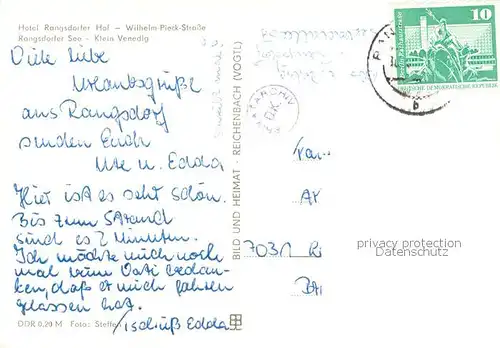 Hotel Rangsdorfer Hof – Wilhelm-Pieck-Straße
Rangsdorfer See – Klein Venedig
Viele liebe
Urlaubsgrüße
aus Rangsdorf
senden Euch
Ute u. Edda
Hier ist es sehr schön.
Bis zum Strand
sind es 2 Minuten.
Ich möchte mich noch
mal beim Vati bedan-
ken, daß er mich fahren
gelassen hat.
Tschüß Edda
DDR 0,20 M Foto: Steffen
BILD UND HEIMAT · REICHENBACH (VOGTL)
10
DEUTSCHE DEMOKRATISCHE REPUBLIK
RAN
b
ARCHIV
Fam
7031
privacy protection
Datenschutz